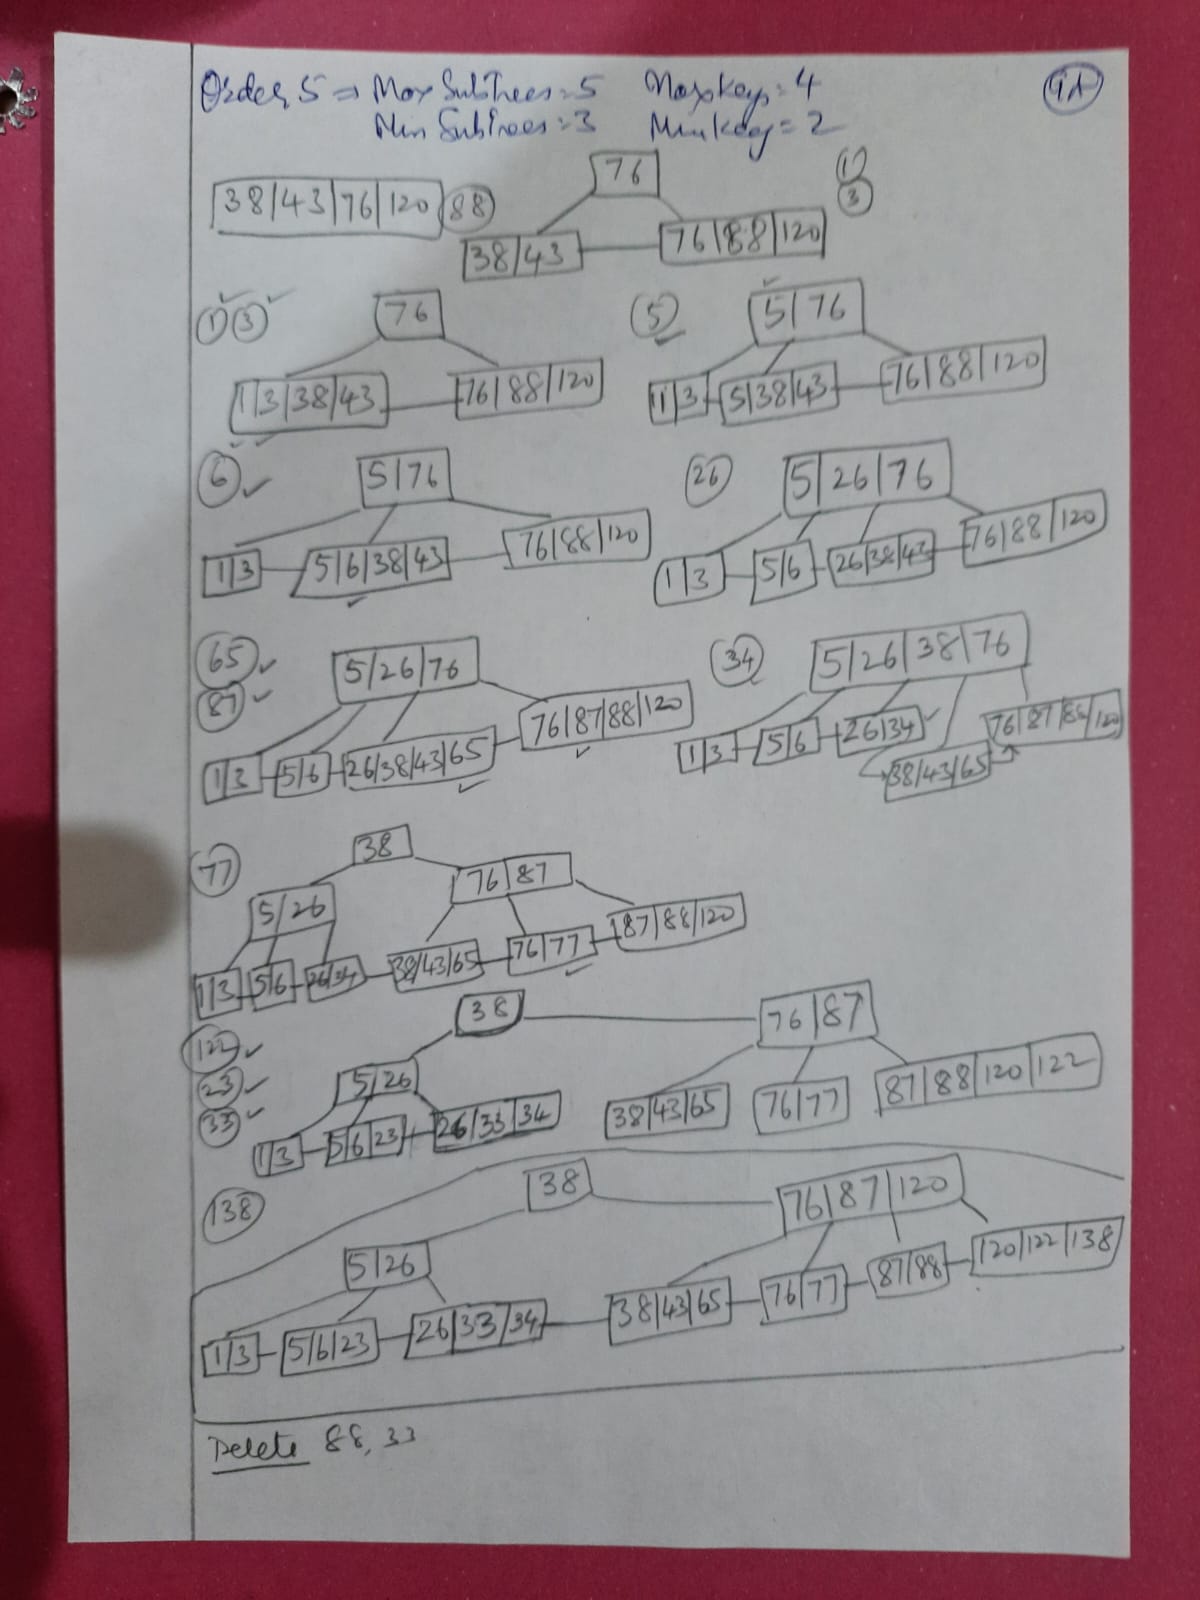 Order 5 ⇒ Max SubTrees = 5 Max keys = 4
Min SubTrees = 3 Min key = 2
76
38/43/76/120 88
1
3
38/43 76/88/120
1 3 76 5 5/76
1/3/38/43 76/88/120 1/3 5/38/43 76/88/120
6 5/76 26 5/26/76
1/3 5/6/38/43 76/88/120 1/3 5/6 26/38/43 76/88/120
65 5/26/76 34 5/26/38/76
87
1/3 5/6 26/38/43/65 76/87/88/120 1/3 5/6 26/34 38/43/65 76/87/88/120
77 38
5/26 76/87
1/3 5/6 26/34 38/43/65 76/77 87/88/120
38 76/87
122
23 5/26
33
1/3 5/6/23 26/33/34 38/43/65 76/77 87/88/120/122
138 38 76/87/120
5/26
1/3 5/6/23 26/33/34 38/43/65 76/77 87/88 120/122/138
Delete 88, 33